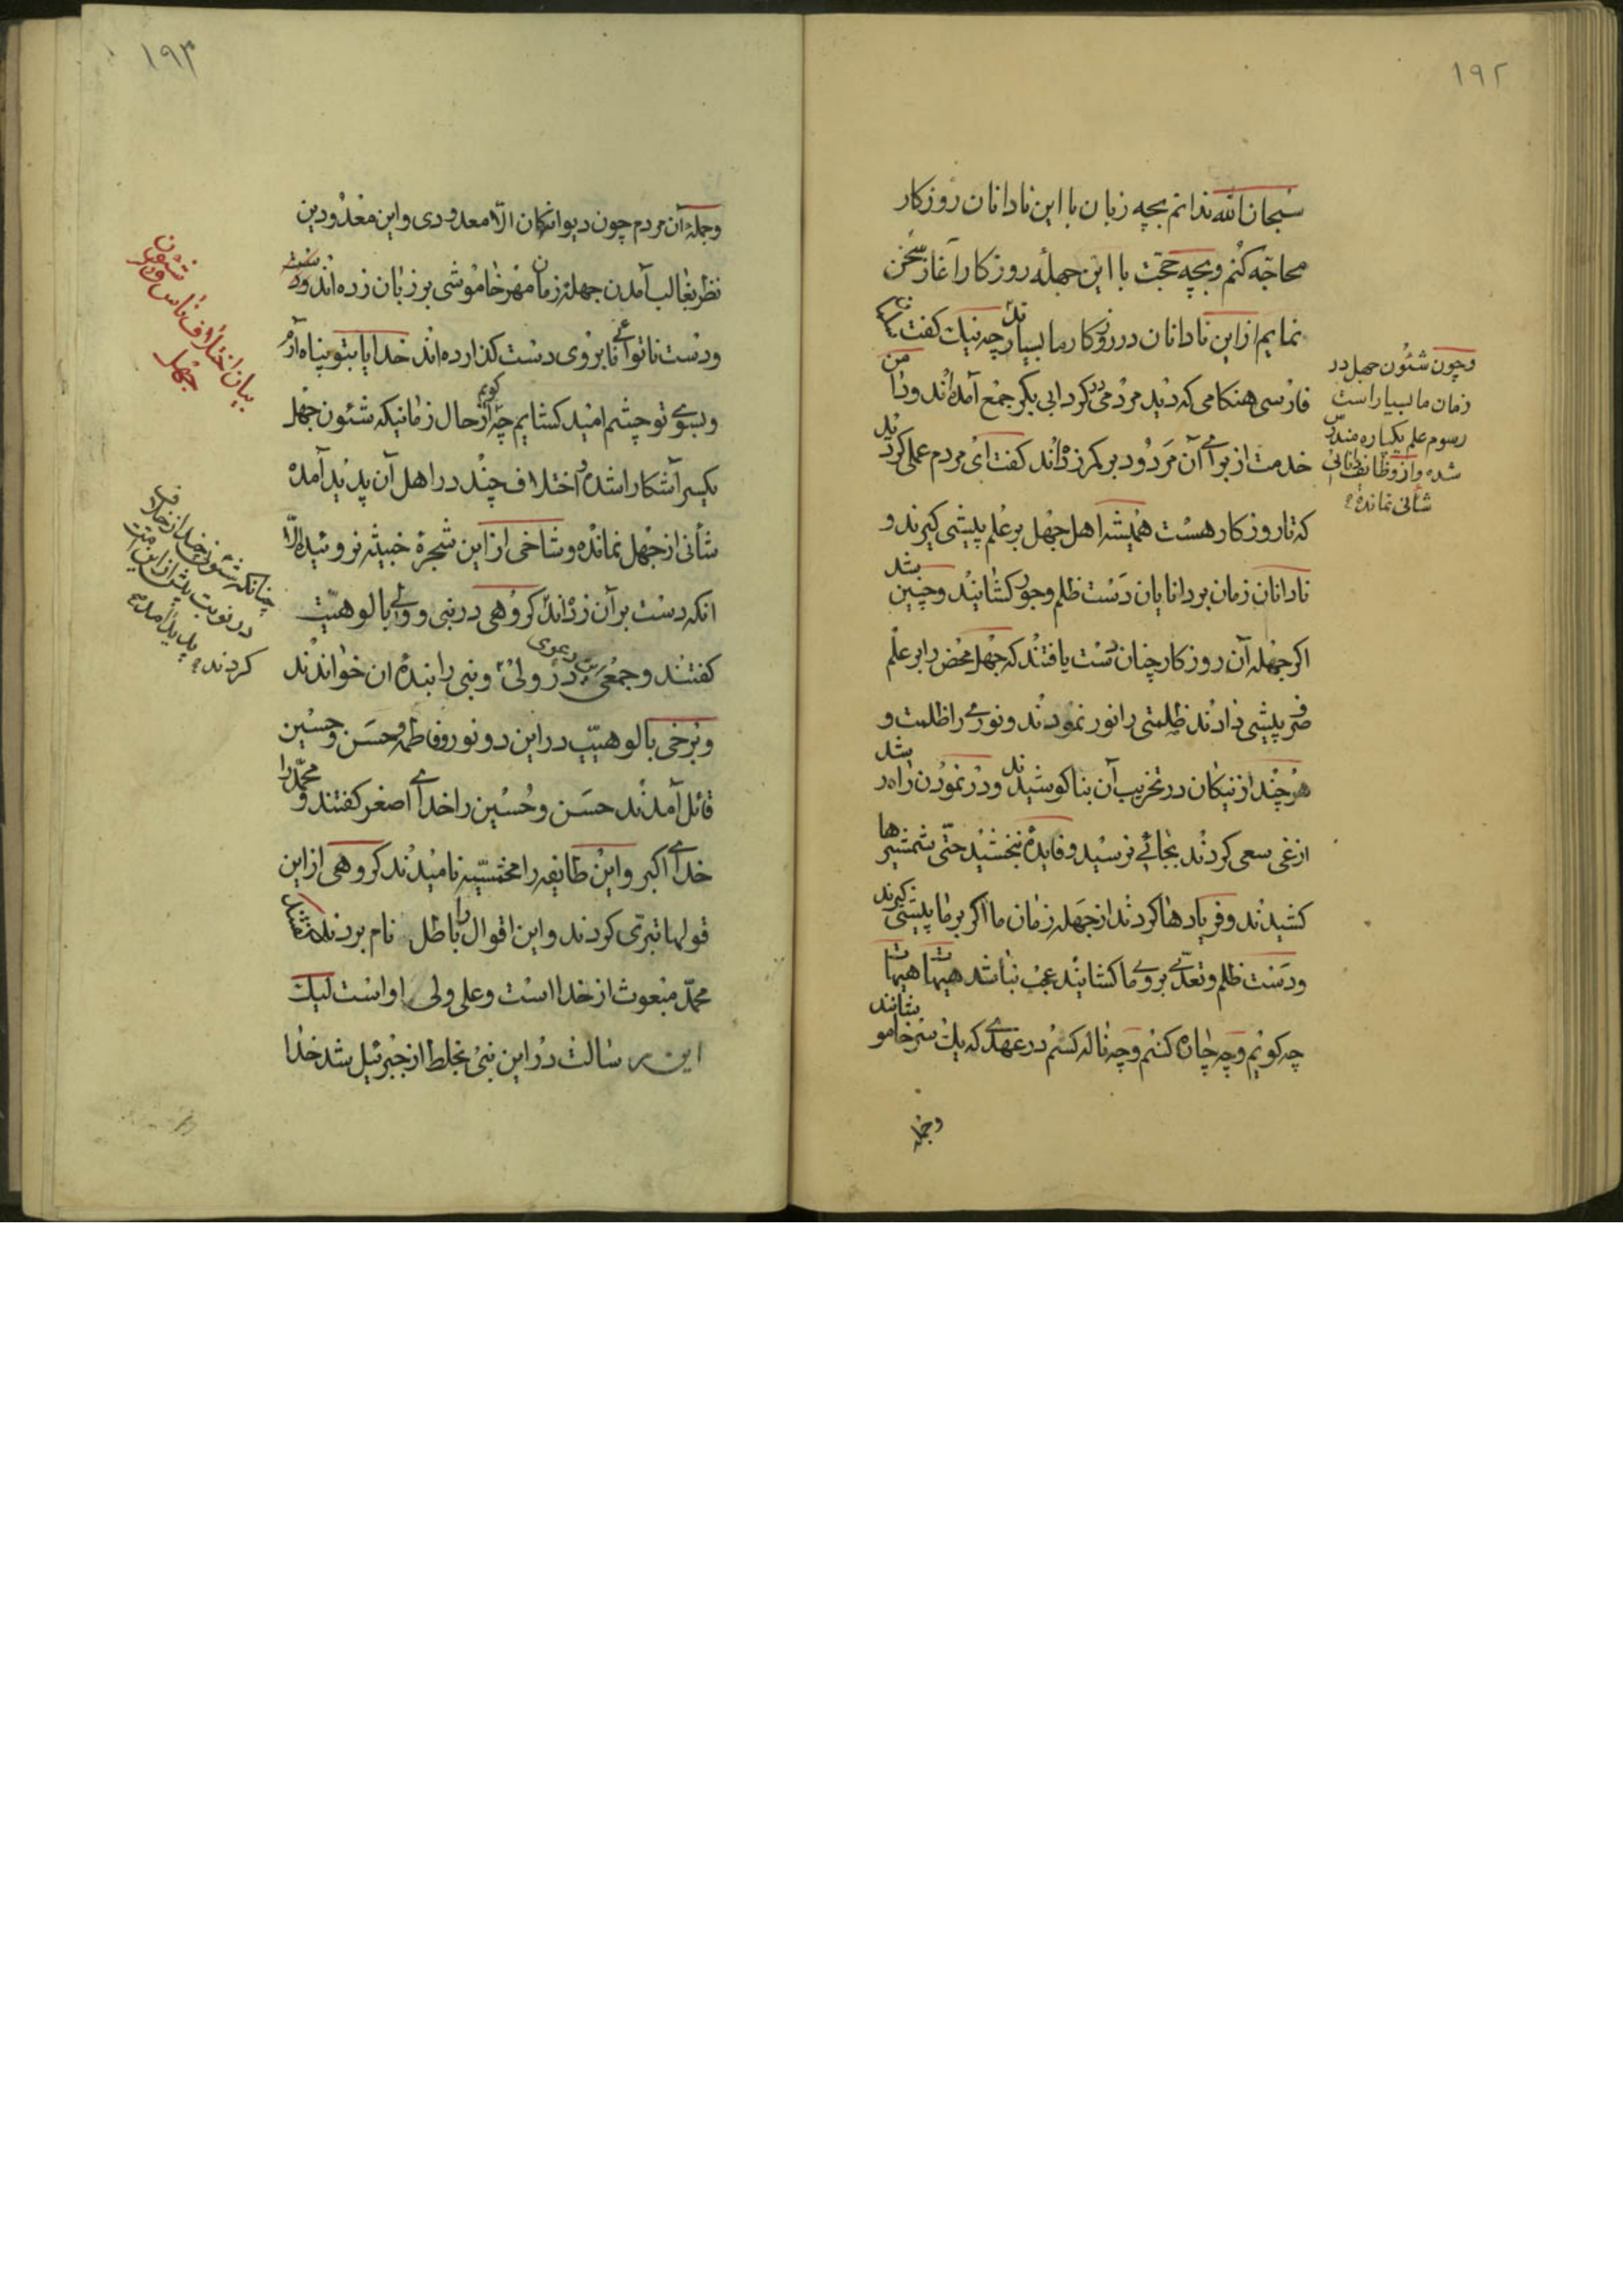 ١٩٢
سبحان الله ندانم بچه زبان با این نادانان روزکار
محاجّه کنم و بچه حجّت با این جهلهٔ روزکار آغاز سخن
نمایم از این نادانان در روزکار ما بسیارند چه نیك کفت
فارسی هنکامی که دید مردمی کرد ابی بکر جمع آمده‌اند و دامن
خدمت از برای آن مردود بر کمر زده‌اند کفت ای مردم عملی کردند
که تا روزکار هست همیشه اهل جهل بر علم پیشی کیرند و
نادانان زمان بر دانایان دست ظلم و جور کشانید و چنین شد
اکر جهله آن روزکار چنان دست یافتند که جهل محض را بر علم
صرف پیشی دادند ظلمتی را نور نمودند و نوری را ظلمت و
هر چند از نیکان در تخریب آن بنا کوشیدند و در نمودن راه رشد
از غی سعی کردند بجائی نرسید و فایده نبخشید حتّی شمشیرها
کشیدند و فریادها کردند از جهله زمان ما اکر بر ما پیشی کیرند
و دست ظلم و تعدّی بروی ما کشایند عجب نباشد هیهات هیهات
چه کویم و چه چاره کنم و چه ناله کشم در عهدی که یك سر خاموشانند
وجمله
وچون شئون جهل در
زمان ما بسیار است
رسوم علم یکباره مندرس
شده و از وظایف دانائی
شأنی نمانده
١٩٣
وجملهٔ آن مردم چون دیوانکان الّا معدودی و این معدودین
نظر بغالب آمدن جهلهٔ زمان مهر خاموشی بر زبان زده‌اند
و دست ناتوانی تا بر وی دست کذارده‌اند خدایا بتو پناه آرم
و بسوی تو چشم امید کشایم چه کویم از حال زمانیکه شئون جهل
یکسر آشکارا شده و اختلاف چند در اهل آن پدید آمده
شأنی از جهل نمانده و شاخی از این شجرهٔ خبیثه نروئیده الّا
انکه دست بر آن زده‌اند کروهی در نبی و ولی بالوهیّت
کفتند و جمعی این دعوی در ولی و نبی را بندهٔ ان خواندند
و برخی بالوهیّت در این دو نور و فاطمه و حسن و حسین
قائل آمدند حسن و حسین را خدای اصغر کفتند و محمّد را
خدای اکبر و این طایفه را مخمّسیّه نامیدند کروهی از این
قولها تبرّی کردند و این اقوال را باطل نام بردند
محمّد مبعوث از خدا است و علی ولی او است لیك
این رسالت در این نبی بغلط از جبرئیل شد خدا
بیان اختلاف ناس در شئون
جهل
چنانکه شئونی چند از خلاف
در نوبت پیش از این امّت
پدید آمده
کردند